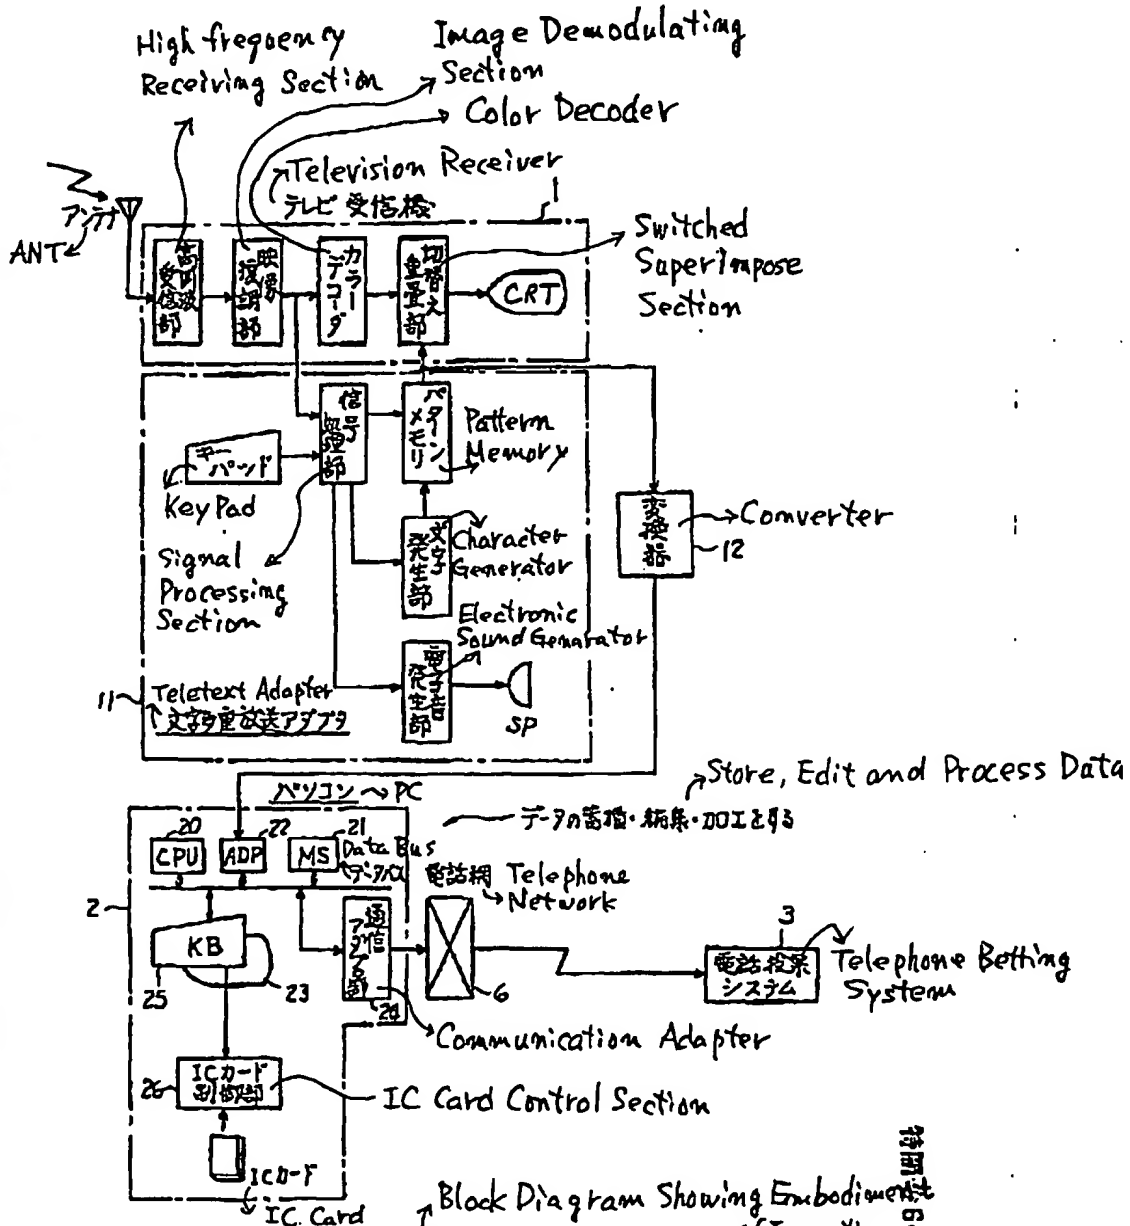 High frequency
Receiving Section
Image Demodulating
Section
Color Decoder
Television Receiver
テレビ受信機
1
アンテナ
ANT
高周波
受信部
映像
復調部
カラー
デコーダ
切替え
重畳部
CRT
Switched
Superimpose
Section
信号
処理部
パターン
メモリ
Pattern
Memory
キー
パッド
Key Pad
Signal
Processing
Section
文字
発生部
Character
Generator
変換器
Converter
12
Electronic
Sound Genarator
電子音
発生部
SP
11
Teletext Adapter
文字多重放送アダプタ
Store, Edit and Process Data
データの蓄積・編集・加工をする
パソコン
PC
20
22
21
CPU
ADP
MS
Data Bus
データバス
電話網
Telephone
Network
2
KB
25
23
通信
アダプタ部
24
6
3
電話投票
システム
Telephone Betting
System
Communication Adapter
26
ICカード
制御部
IC Card Control Section
ICカード
IC Card
Block Diagram Showing Embodiment